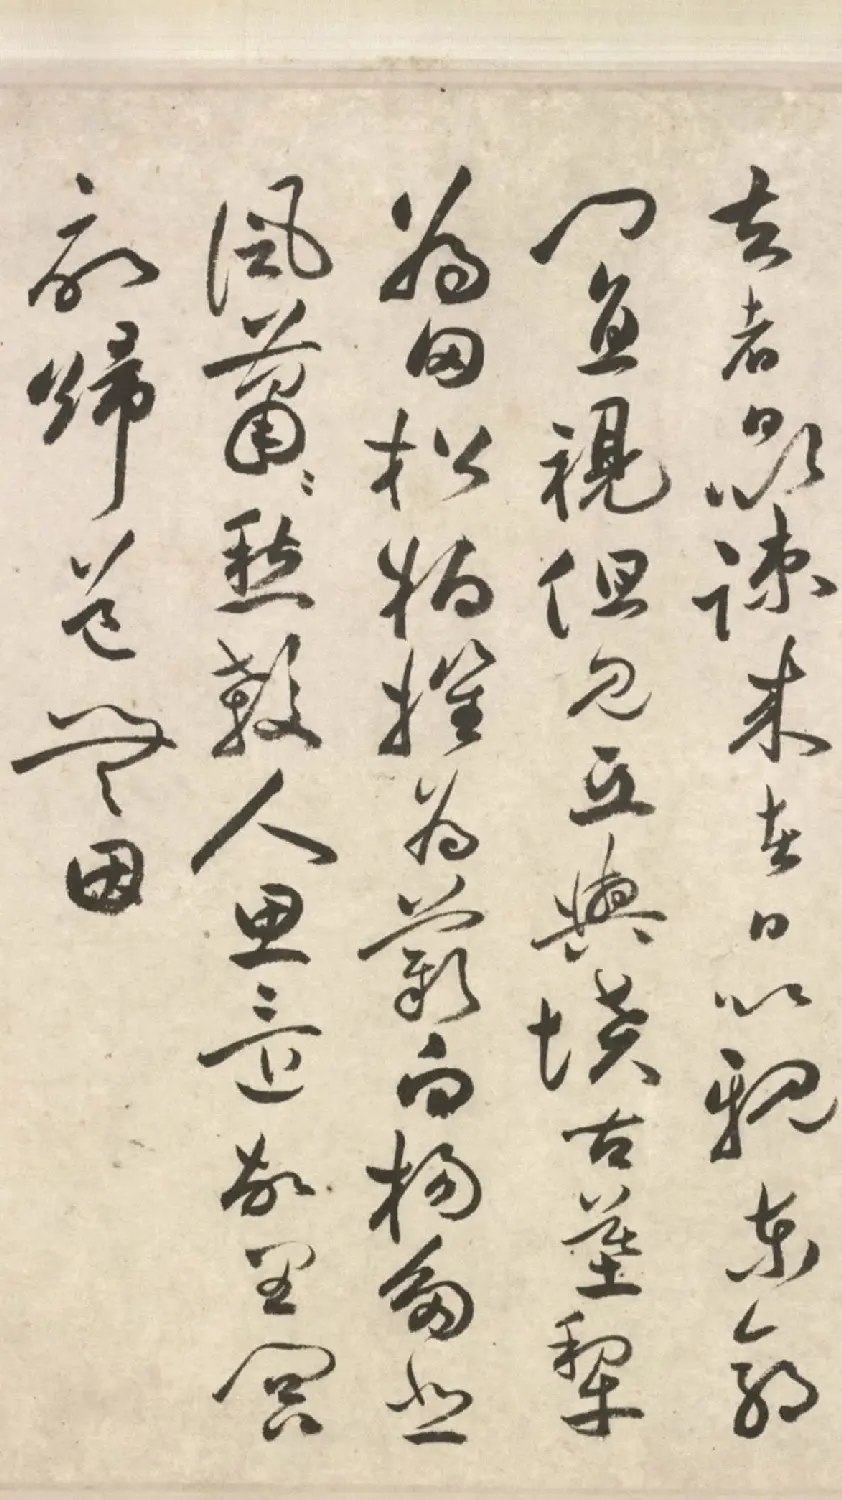 去者日以疎来者日以親東郭
門直視但見丘與墳古墓犁
為田松柏摧為薪白楊多悲
風蕭〻愁殺人思還故里閭
欲歸道無因